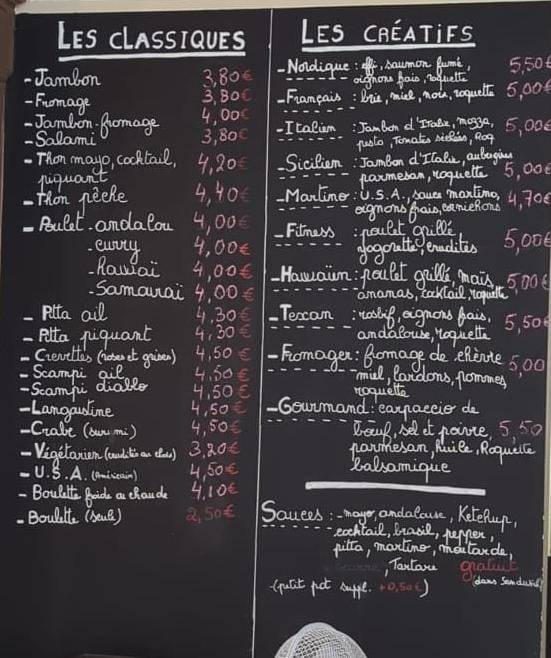 LES CLASSIQUES
- Jambon 3,80€
- Fromage 3,80€
- Jambon-fromage 4,00€
- Salami 3,80€
- Thon mayo, cocktail, 4,20€
piquant
- Thon pêche 4,40€
- Poulet - andalou 4,00€
- curry 4,00€
- Hawaï 4,00€
- Samouraï 4,00€
- Pitta ail 4,30€
- Pitta piquant 4,30€
- Crevettes (roses et grises) 4,50€
- Scampi ail 4,50€
- Scampi diablo 4,50€
- Langoustine 4,50€
- Crabe (surimi) 4,50€
- Végétarien (crudités au choix) 3,20€
- U.S.A. (Américain) 4,50€
- Boulette froide ou chaude 4,10€
- Boulette (seule) 2,50€
LES CRÉATIFS
- Nordique : saumon fumé, 5,50€
oignons frais, roquette
- Français : brie, miel, noix, roquette 5,00€
- Italien : Jambon d'Italie, mozza, 5,00€
pesto, Tomates séchées, Roq
- Sicilien : Jambon d'Italie, aubergines 5,00€
parmesan, roquette
- Martino : U.S.A., sauce martino, 4,70€
oignons frais, cornichons
- Fitness : poulet grillé 5,00€
, crudités
- Hawaïen : poulet grillé, maïs, 5,00€
ananas, cocktail, roquette
- Texan : rosbif, oignons frais, 5,50€
andalouse, roquette
- Fromager : fromage de chèvre 5,00
miel, lardons, pommes,
roquette
- Gourmand : carpaccio de
bœuf, sel et poivre, 5,50
parmesan, huile, Roquette
balsamique
Sauces : - mayo, andalouse, Ketchup,
cocktail, brasil, pepper,
pitta, martino, moutarde,
, Tartare gratuit
(petit pot suppl. +0,50€) (dans Sandwich)